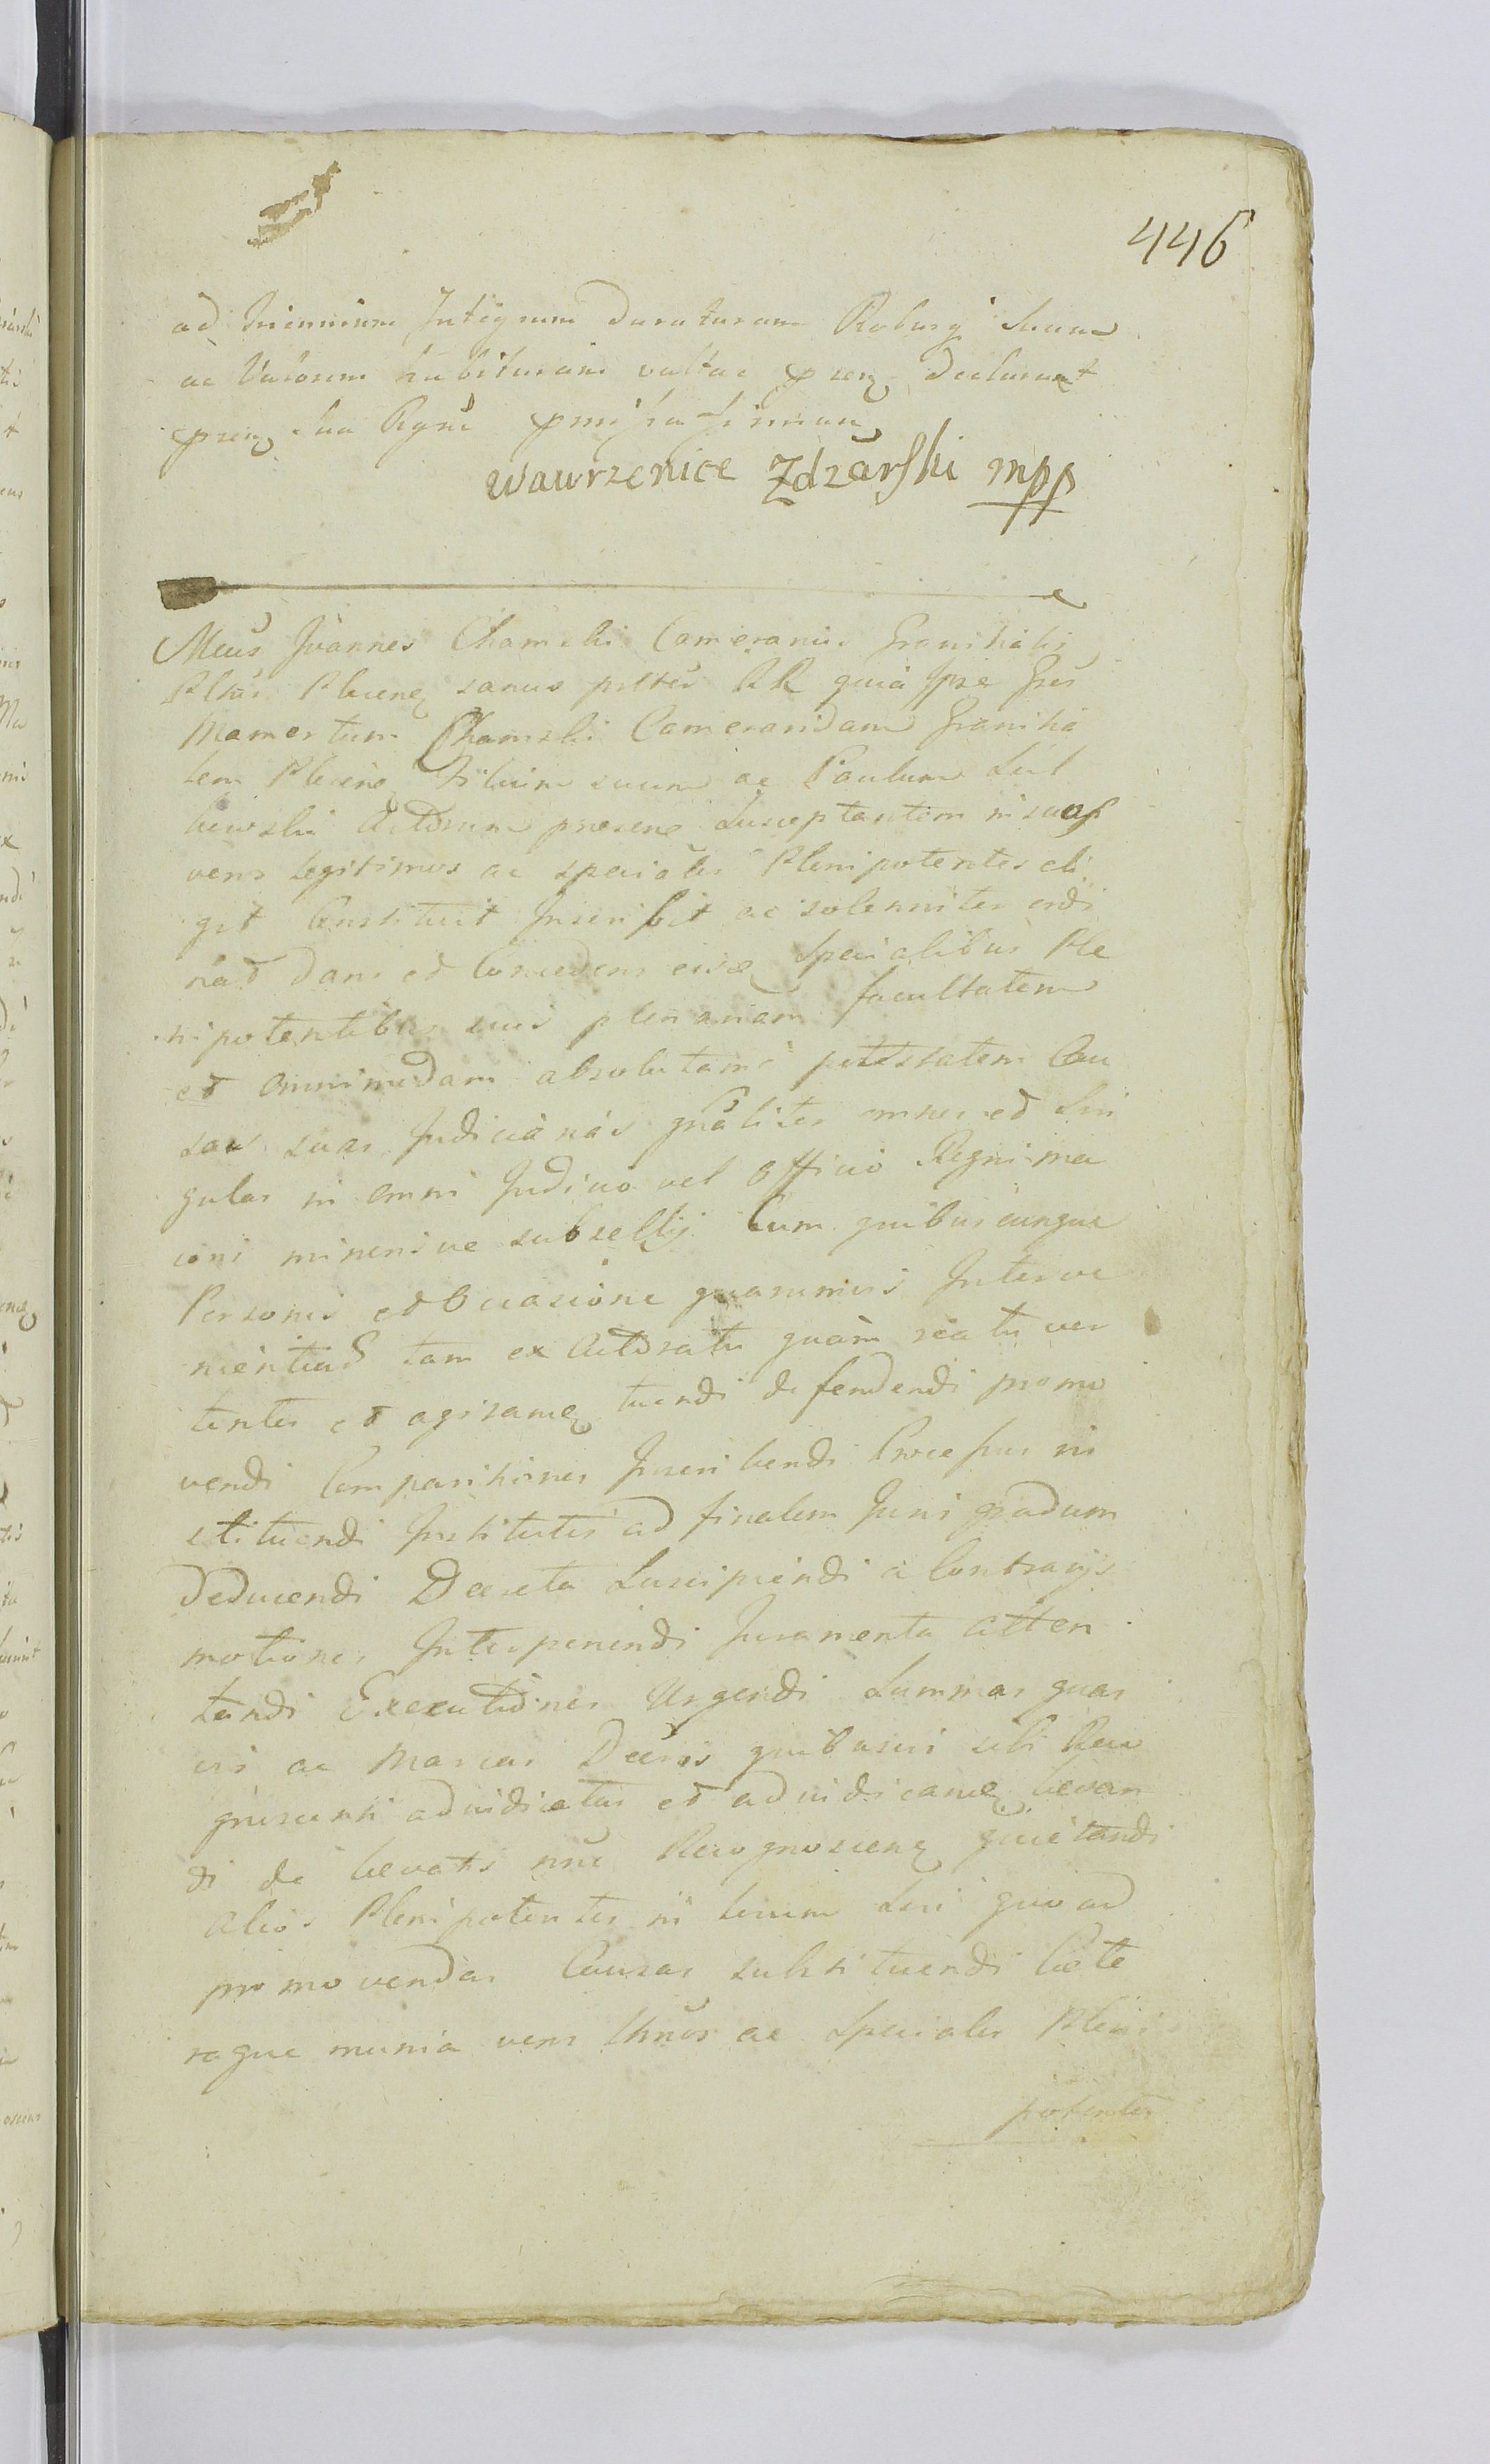 446
ad Triennium Integrum Duraturam Roburq suum
ac Valorem habituram vultac Declarant
sua
Wawrzeniec Zdzarski mpp
Mcus Joannes Chamski Camerarius Granitialis
Pltûs Plocens sanus RR quia Ipse Gsus
Mamertum Chamski Cameraridam Granitia
lem Plocens Filium suum ac Paulum Sul
kowski Actorum praesens Susceptantem in suos
veros legitimos ac speciales Plenipotentes eli
git Constituit Inscribit ac solenniter ordi
nat Dans et Concedens eisd Specialibus Ple
nipotentibus suis plenariam facultatem
et omnimodam absolutamq potestatem Cau
sas suas Judiciarias gnâliter omnes et Sin
gulas in omni Judicio vel Officio Regni ma
joris minorisve subsellij Cum quibuscunque
Personis et Occasione quarumvis Interve
nientias tam ex Actoratu quam reatu ver
tentes et agitanas tuendi defendendi promo
vendi Comparitiones Inscribendi Processus in
stituendi Institutos ad finalem Juris gradum
Deducendi Decreta Suscipiendi a Contrarijs
motiones Interponendi Juramenta atten
tandi Executiones Urgendi Summas quas
vis ac Marcas Decris quibusvis sibi Reco
gnoscenti adiudicatas et adiudicanas levan
di de levatis Recognoscens quietandi
alios Plenipotentes in locum Sui quoad
promovendas Causas substituendi Cæte
raque munia veros lttmos ac Speciales Pleni
potentes